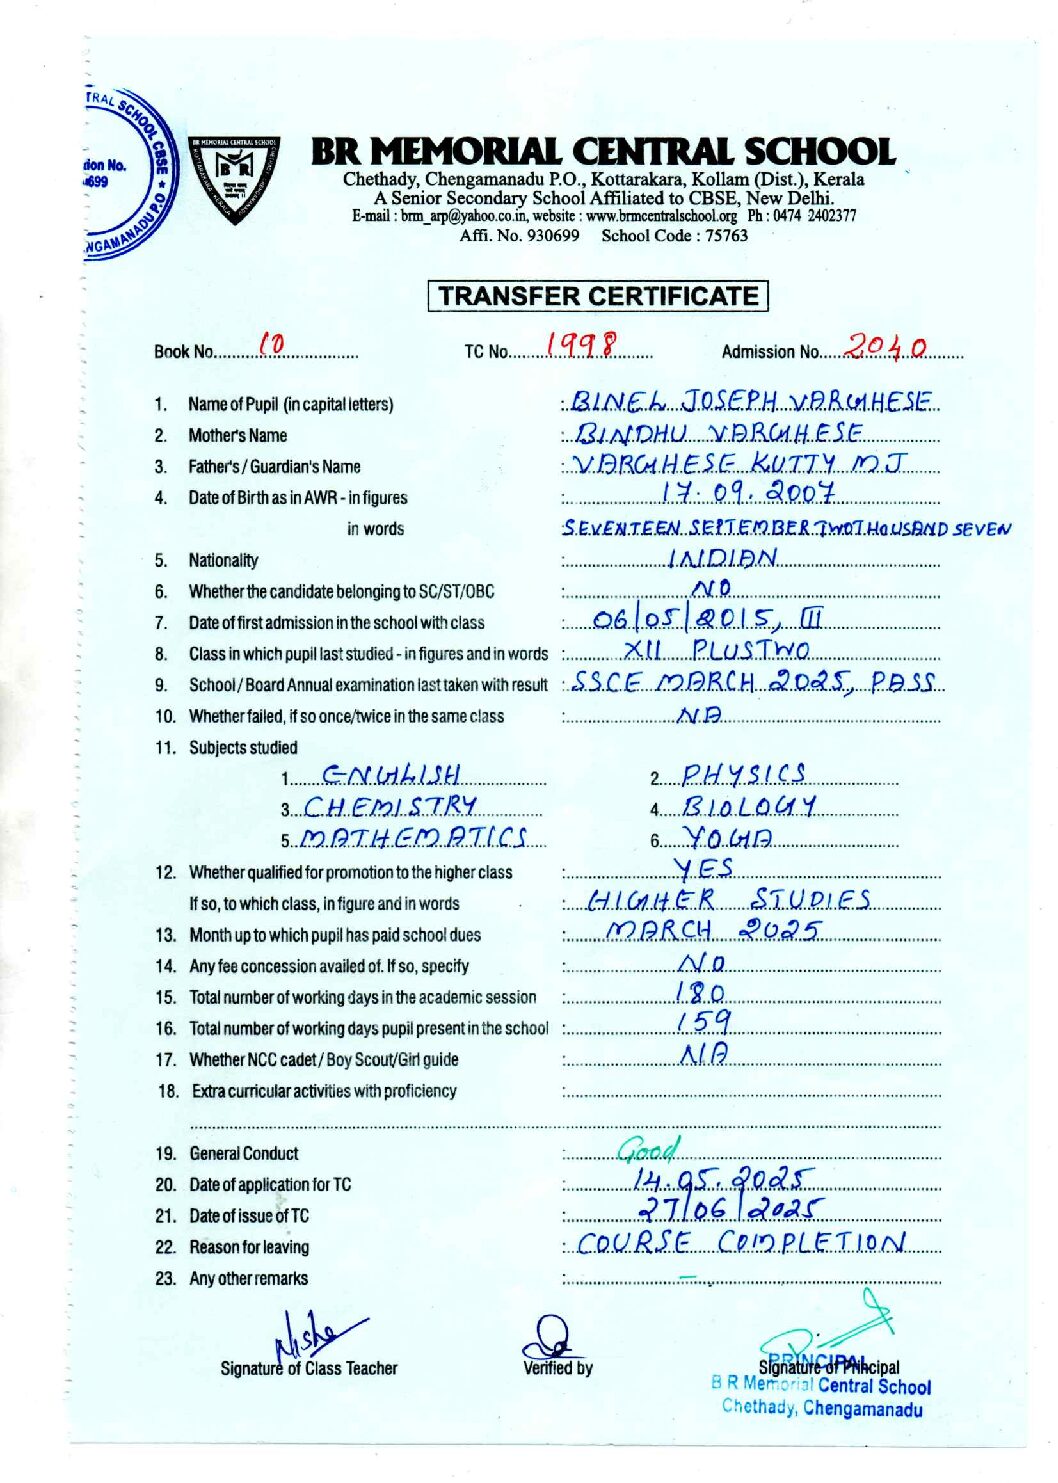 TRAL SCHOOL CBSE ★
tion No.
699
NGAMANADU P.O
BR MEMORIAL CENTRAL SCHOOL
BR
BR MEMORIAL CENTRAL SCHOOL
Chethady, Chengamanadu P.O., Kottarakara, Kollam (Dist.), Kerala
A Senior Secondary School Affiliated to CBSE, New Delhi.
E-mail : brm_arp@yahoo.co.in, website : www.brmcentralschool.org Ph : 0474 2402377
Affi. No. 930699 School Code : 75763
TRANSFER CERTIFICATE
Book No. 10 TC No. 1998 Admission No. 2040
1. Name of Pupil (in capital letters) : BINEL JOSEPH VARGHESE
2. Mother's Name : BINDHU VARGHESE
3. Father's / Guardian's Name : VARGHESE KUTTY M J
4. Date of Birth as in AWR - in figures : 17.09.2007
in words SEVENTEEN SEPTEMBER TWO THOUSAND SEVEN
5. Nationality : INDIAN
6. Whether the candidate belonging to SC/ST/OBC : NO
7. Date of first admission in the school with class : 06/05/2015, III
8. Class in which pupil last studied - in figures and in words : XII PLUSTWO
9. School / Board Annual examination last taken with result : SSCE MARCH 2025, PASS
10. Whether failed, if so once/twice in the same class : NA
11. Subjects studied
1. ENGLISH 2. PHYSICS
3. CHEMISTRY 4. BIOLOGY
5. MATHEMATICS 6. YOGA
12. Whether qualified for promotion to the higher class : YES
If so, to which class, in figure and in words : HIGHER STUDIES
13. Month up to which pupil has paid school dues : MARCH 2025
14. Any fee concession availed of. If so, specify : NO
15. Total number of working days in the academic session : 180
16. Total number of working days pupil present in the school : 159
17. Whether NCC cadet / Boy Scout/Girl guide : NA
18. Extra curricular activities with proficiency :
19. General Conduct : Good
20. Date of application for TC : 14.05.2025
21. Date of issue of TC : 27/06/2025
22. Reason for leaving : COURSE COMPLETION
23. Any other remarks : –
Nisha
Signature of Class Teacher Verified by Signature of Principal
PRINCIPAL
B R Memorial Central School
Chethady, Chengamanadu